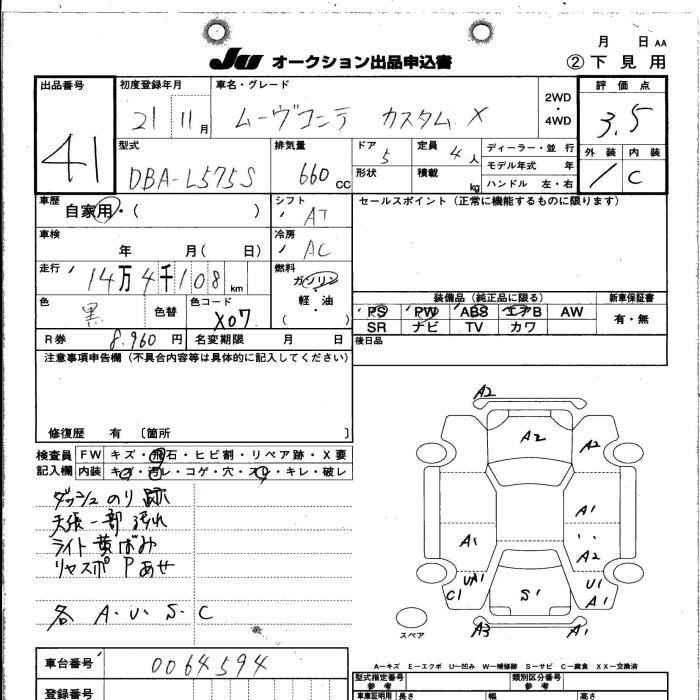 月 日 AA
JU オークション出品申込書 ② 下見用
出品番号 初度登録年月 車名・グレード 2WD ・ 4WD 評価点
41 21 11月 ムーヴコンテ カスタム X 3.5
型式 排気量 ドア 定員 ディーラー・並行 外装 内装
DBA-L575S 660cc 5 4人 モデル年式 年 C
形状 積載 kg ハンドル 左・右
車歴 シフト セールスポイント(正常に機能するものに限ります)
自家用・( ) AT
車検 冷房
年 月( 日) AC
走行 燃料
14万4千108km ガソリン・軽油
( )
色 色替 色コード 装備品(純正品に限る) 新車保証書
黒 X07 PS PW ABS エアB AW 有・無
SR ナビ TV カワ
R券 8.960円 名変期限 月 日 後日品
注意事項申告欄(不具合内容等は具体的に記入してください)
修復歴 有 〔箇所 〕
検査員記入欄 FW キズ・飛石・ヒビ割・リペア跡・X要
内装 キズ・汚レ・コゲ・穴・スレ・キレ・破レ
ダッシュ のり 跡
天張 一部 汚れ
ライト 黄ばみ
リヤスポ Pあせ
各 A. U. S. C
A2
A2 A2
A1
A1 A2
UA1 U1
C1 S1 A1
スペア A3 A1
A―キズ E―エクボ U―凹み W―補修跡 S―サビ C―腐食 XX―交換済
車台番号 0064594
型式指定番号 類別区分番号
参考 参考
登録番号 車庫証明用 長さ 幅 高さ